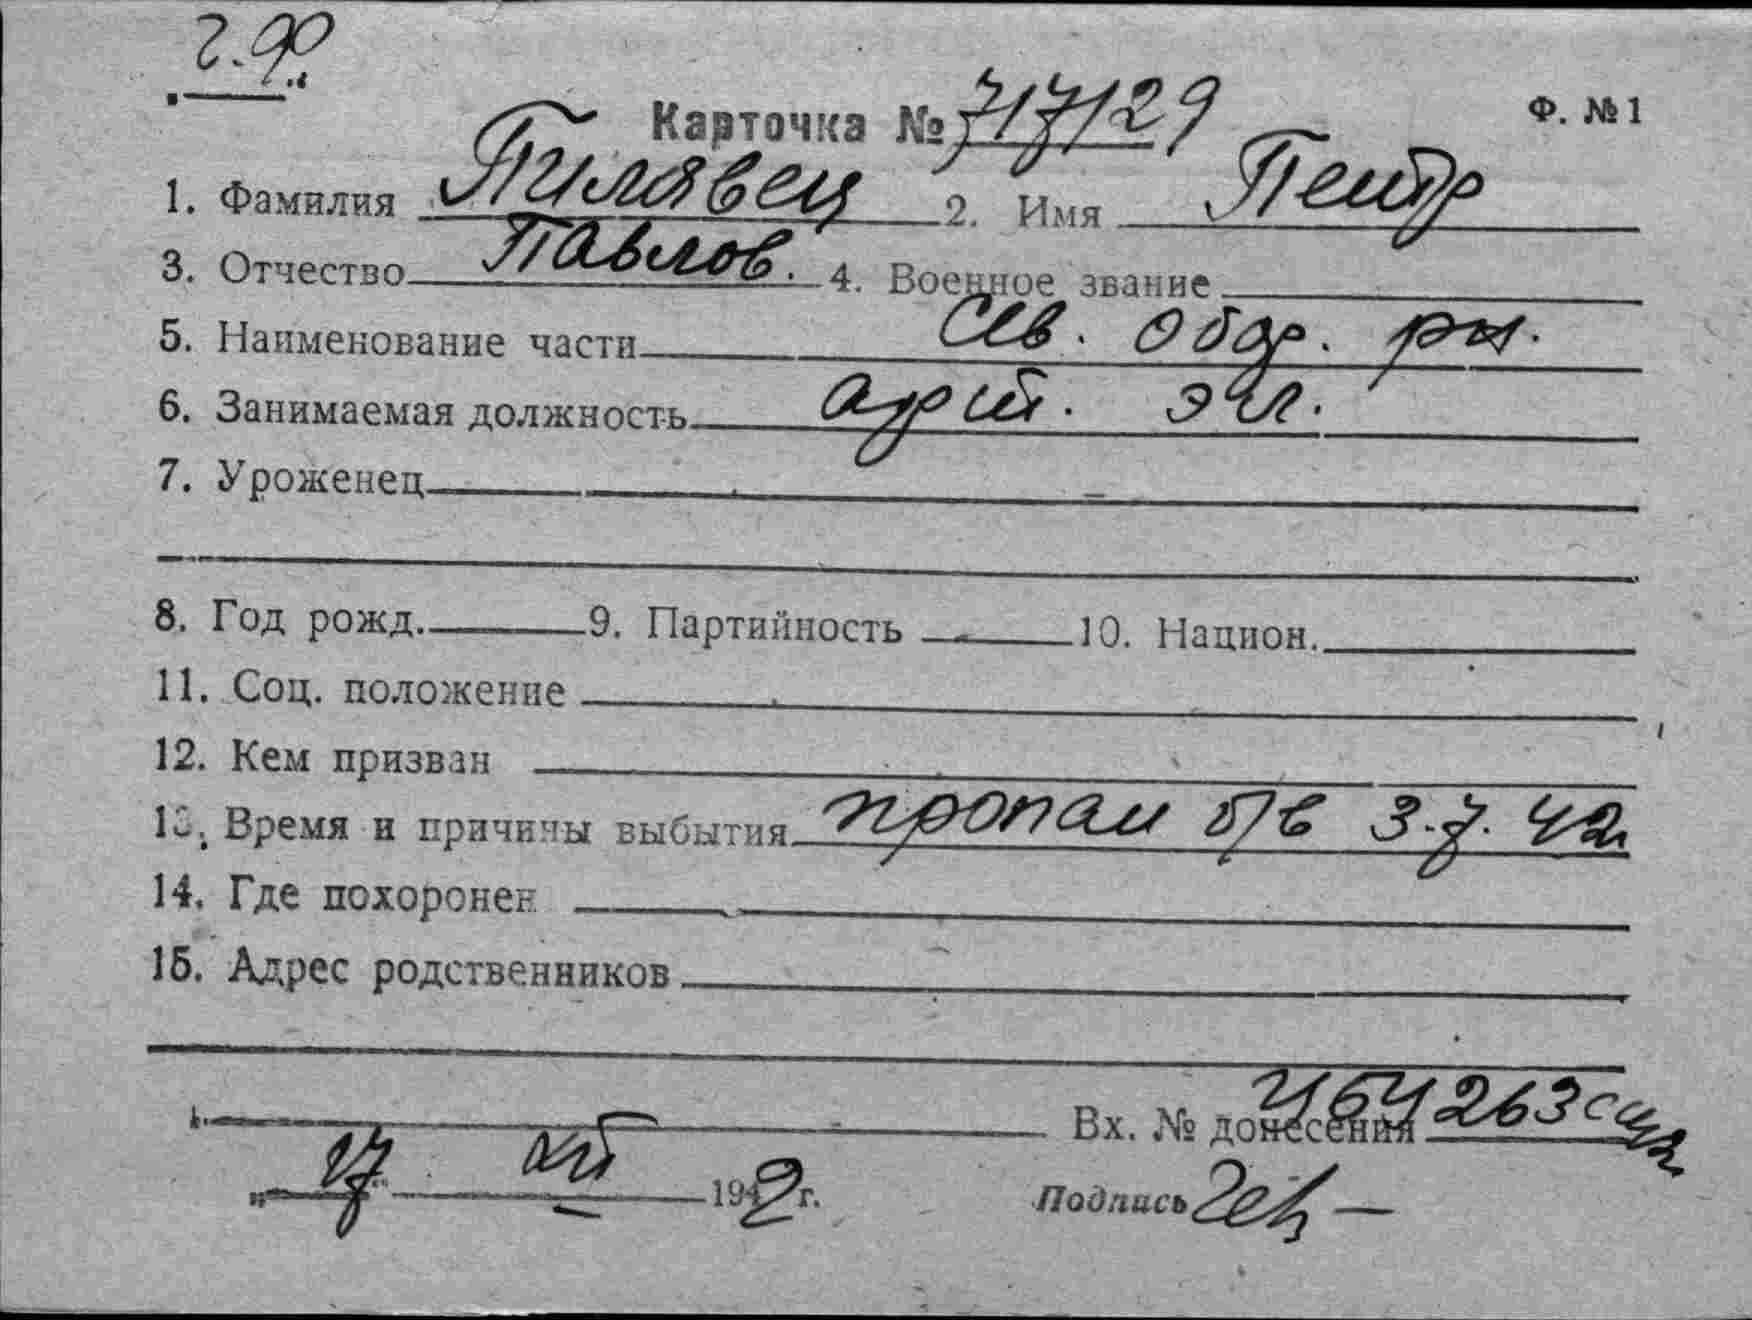 Карточка № 717129 Ф. № 1
1. Фамилия Пилявец 2. Имя Петр
3. Отчество Павлов. 4. Военное звание
5. Наименование части Сев. обор. рн.
6. Занимаемая должность арт. эл.
7. Уроженец
8. Год рожд. 9. Партийность 10. Национ.
11. Соц. положение
12. Кем призван
13. Время и причины выбытия пропал б/в 3.7.42
14. Где похоронен
15. Адрес родственников
Вх. № донесения
„17“ XII 1942 г. Подпись